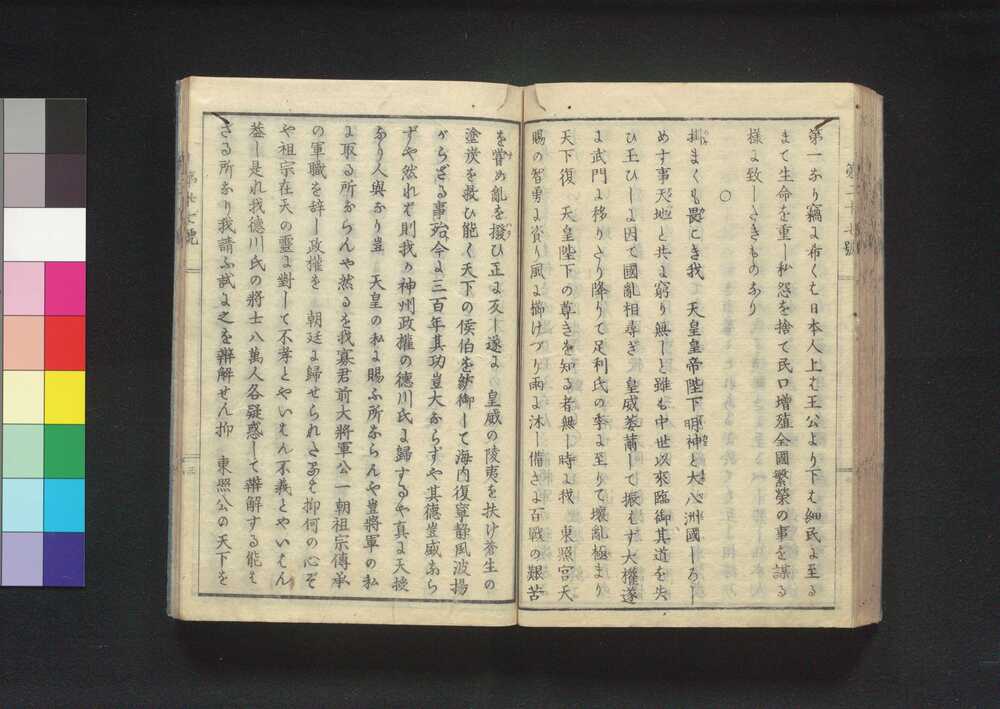 第一なり竊に布くは日本人上は王公より下は細民に至る
まて生命を重し私怨を捨て民口増殖全國繁榮の事を謀る
樣に致したきものなり
○
掛まくも畏こき我　天皇皇帝陛下明神と大八洲國しろし
めす事天地と共に窮り無しと雖も中世以來臨御其道を失
ひ玉ひしに因て國亂相尋ぎ　皇威萎薾して振はず大權遂
に武門に移りたり降りて足利氏の季に至りて壞亂極まり
天下復　天皇陛下の尊きを知る者無し時に我　東照宮天
賜の智勇に資り風に櫛けづり雨に沐し備さに百戰の艱苦
を嘗め亂を撥ひ正に反し遂に　皇威の陵夷を扶け蒼生の
塗炭を救ひ能く天下の侯伯を統御して海内復寧靜風波揚
がらざる事殆今に三百年其功豈大ならずや其德豈威なら
ずや然れば則我が神州政權の德川氏に歸するや真に天授
なり人與なり豈　天皇の私に賜ふ所ならんや豈將軍の私
に取る所ならんや然るを我寡君前大將軍公一朝祖宗傳承
の軍職を辭し政權を　朝廷に歸せられたるは抑何の心ぞ
や祖宗在天の靈に對して不孝とやいはん不義とやいはん
蓋し是れ我德川氏の將士八萬人各疑惑して辯解する能は
ざる所なり我請ふ試に之を辯解せん抑　東照公の天下を